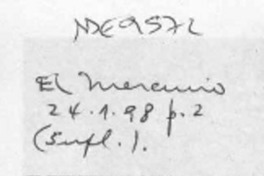 El Mercurio
24.1.98 p.2
(Supl.).